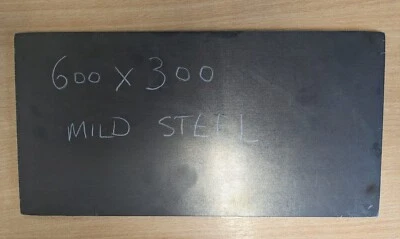 600 x 300
MILD STEEL